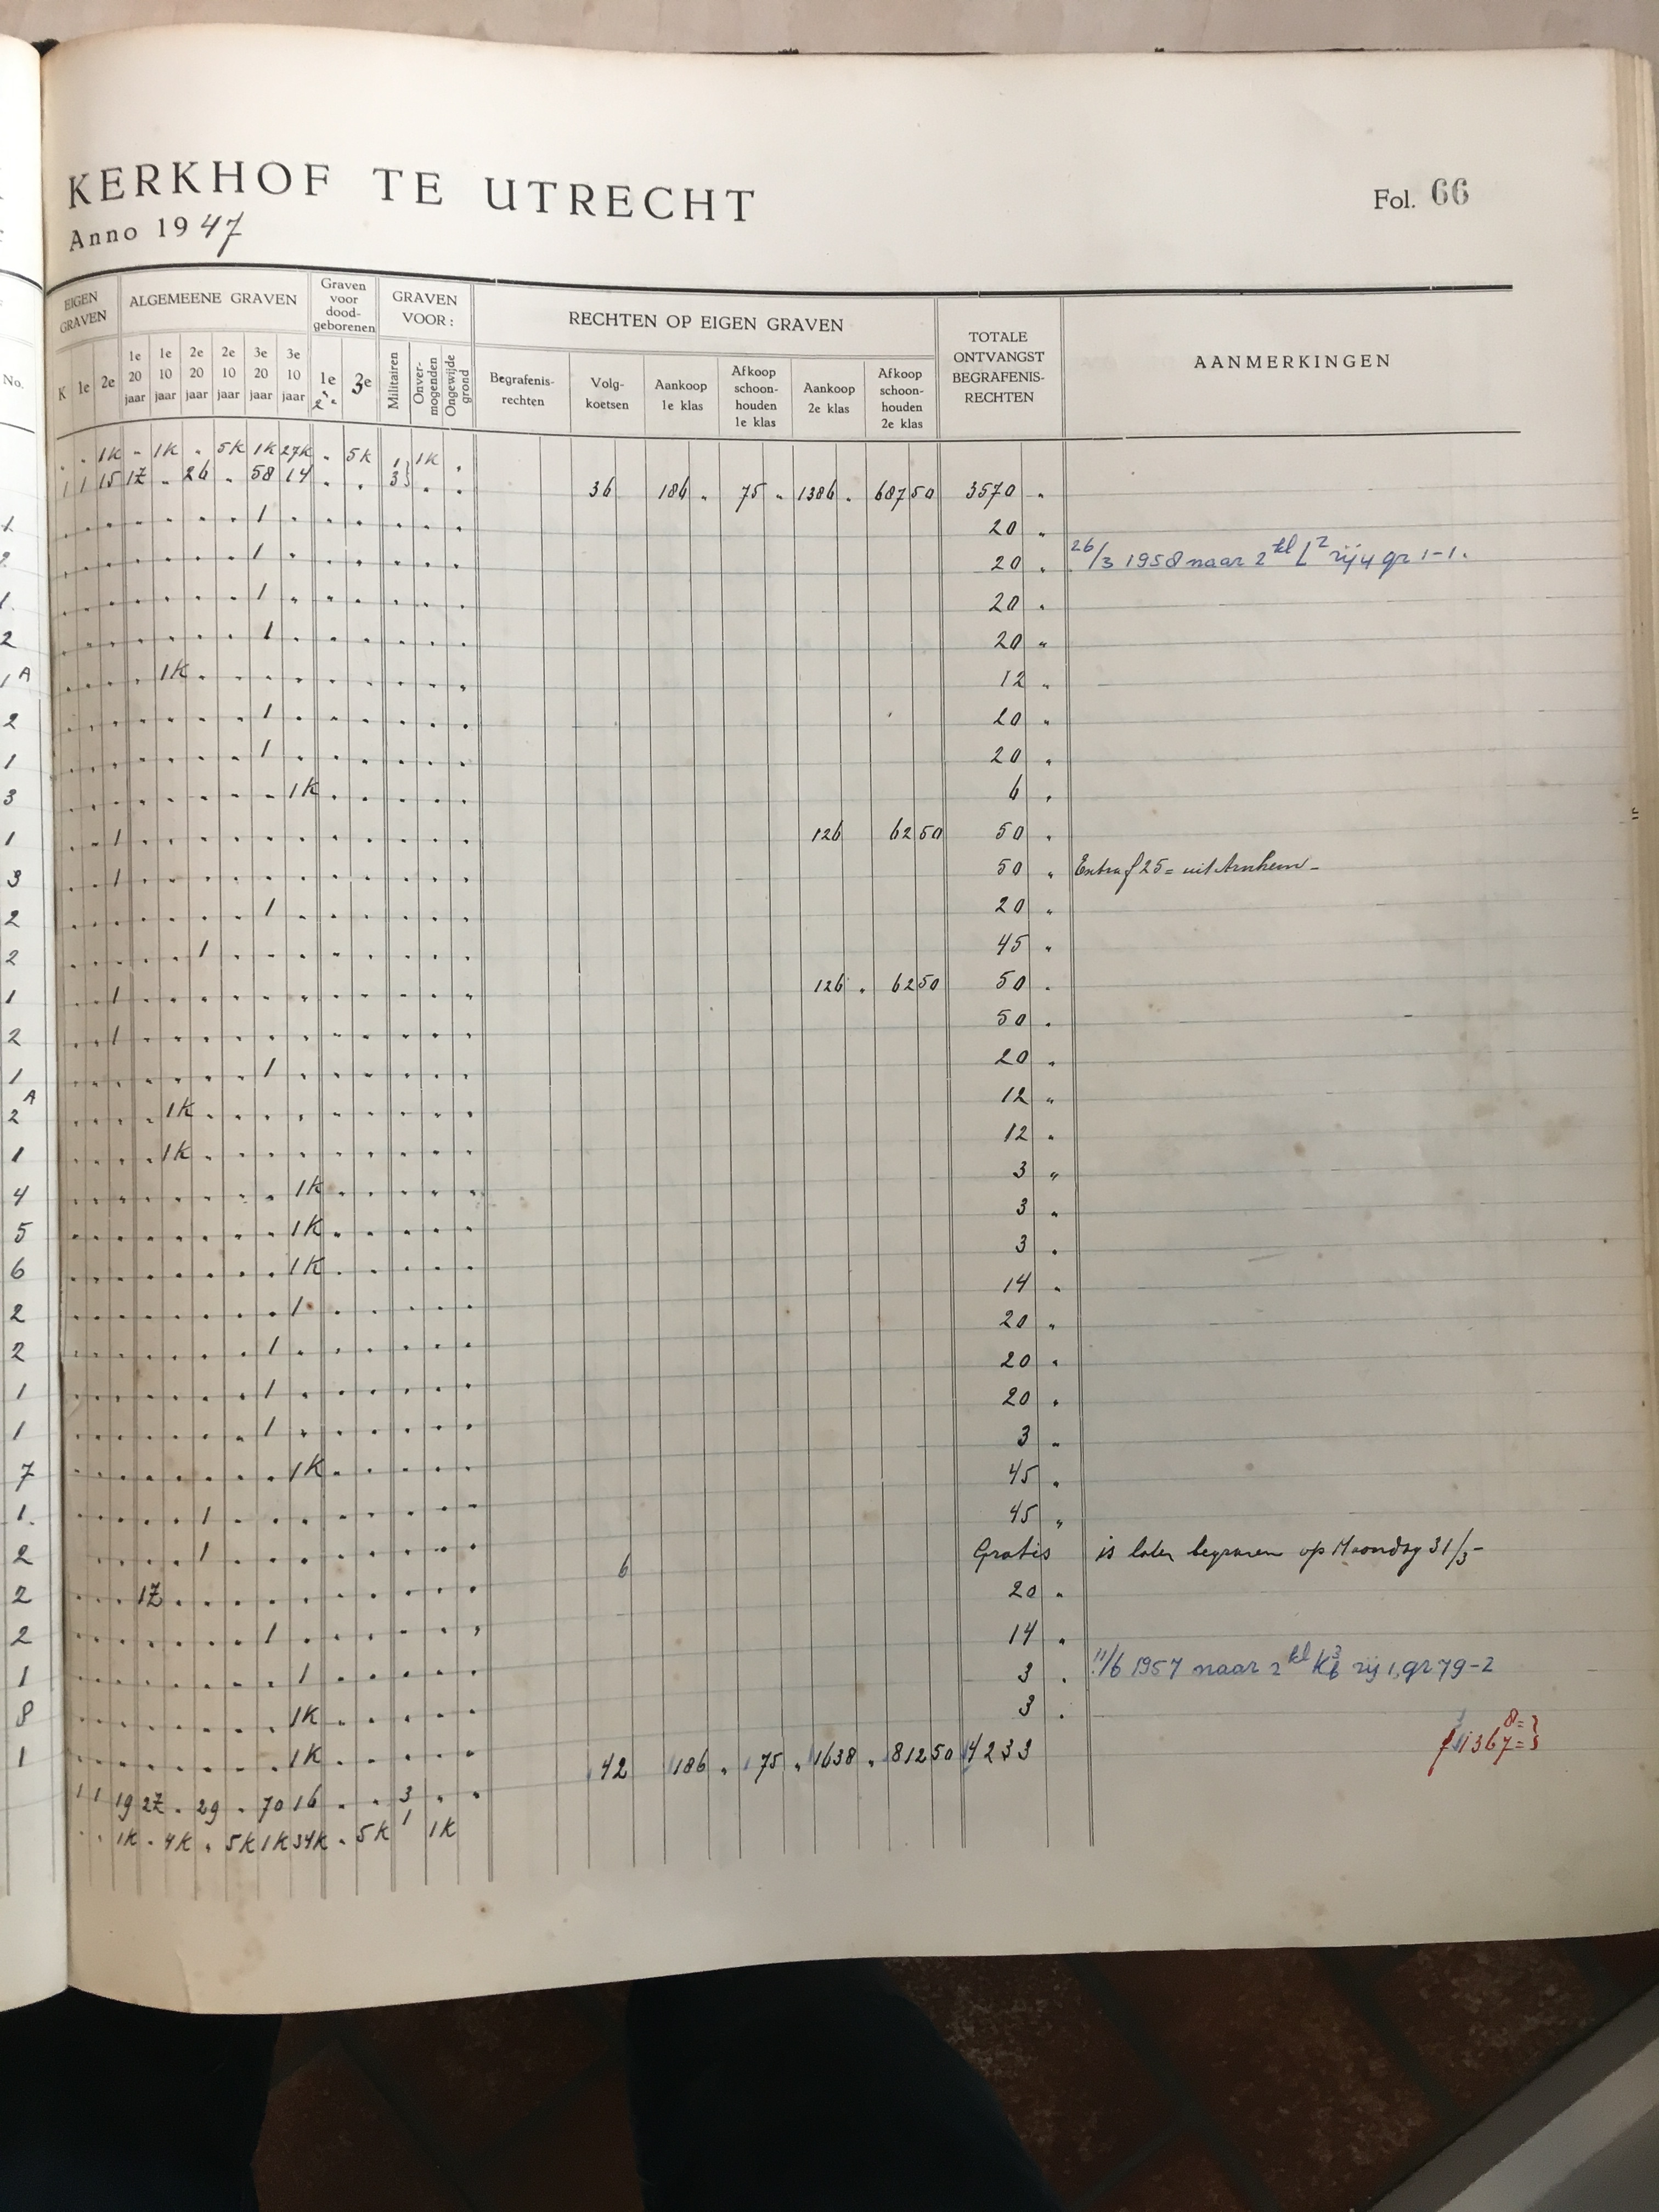 KERKHOF TE UTRECHT
Fol. 66
Anno 1947
EIGEN GRAVEN
ALGEMEENE GRAVEN
Graven voor dood- geborenen
GRAVEN VOOR:
RECHTEN OP EIGEN GRAVEN
TOTALE ONTVANGST BEGRAFENIS- RECHTEN
AANMERKINGEN
No.
K 1e 2e
1e 20 jaar
1e 10 jaar
2e 20 jaar
2e 10 jaar
3e 20 jaar
3e 10 jaar
1e 2e
3e
Militairen
Onver- mogenden
Ongewijde grond
Begrafenis- rechten
Volg- koetsen
Aankoop 1e klas
Afkoop schoon- houden 1e klas
Aankoop 2e klas
Afkoop schoon- houden 2e klas
. . 1K " 1K . 5K 1K 27K . 5K 1 1K .
1 1 15 1Z . 26 . 58 14 . . 3 . . 36 186 . 75 " 1386 . 687 50 3570 "
1 20 "
1 20 . 26/3 1958 naar 2 kl L2 rij 4 gr 1-1.
1. 1 20 "
2 1 20 "
1A 1K 12 "
2 1 20 "
1 1 20 "
3 1K 6 "
1 1 126 62 50 50 "
3 1 50 " Extra f 25= uit Arnhem -
2 1 20 "
2 1 45 "
1 1 126 . 62 50 50 .
2 1 50 .
1 1 20 .
2A 1K 12 "
1 1K 12 "
4 1K 3 "
5 1K 3 "
6 1K 3 .
2 1 14 "
2 1 20 "
1 1 20 "
1 1 20 "
7 1K 3 "
1. 1 45 "
2 1 6 45 "
2 1Z Gratis is later begraven op Maandag 31/3 -
2 1 20 "
1 1 14 "
8 1K 3 . 11/6 1957 naar 2 kl K3 rij 1, gr 79-2
1 1K 3 .
8=
f 1367=
1 1 19 2Z . 29 . 70 16 . . 3 . . 42 186 . 75 " 1638 . 812 50 4233
. . 1K . 4K . 5K 1K 34K . 5K 1 1K